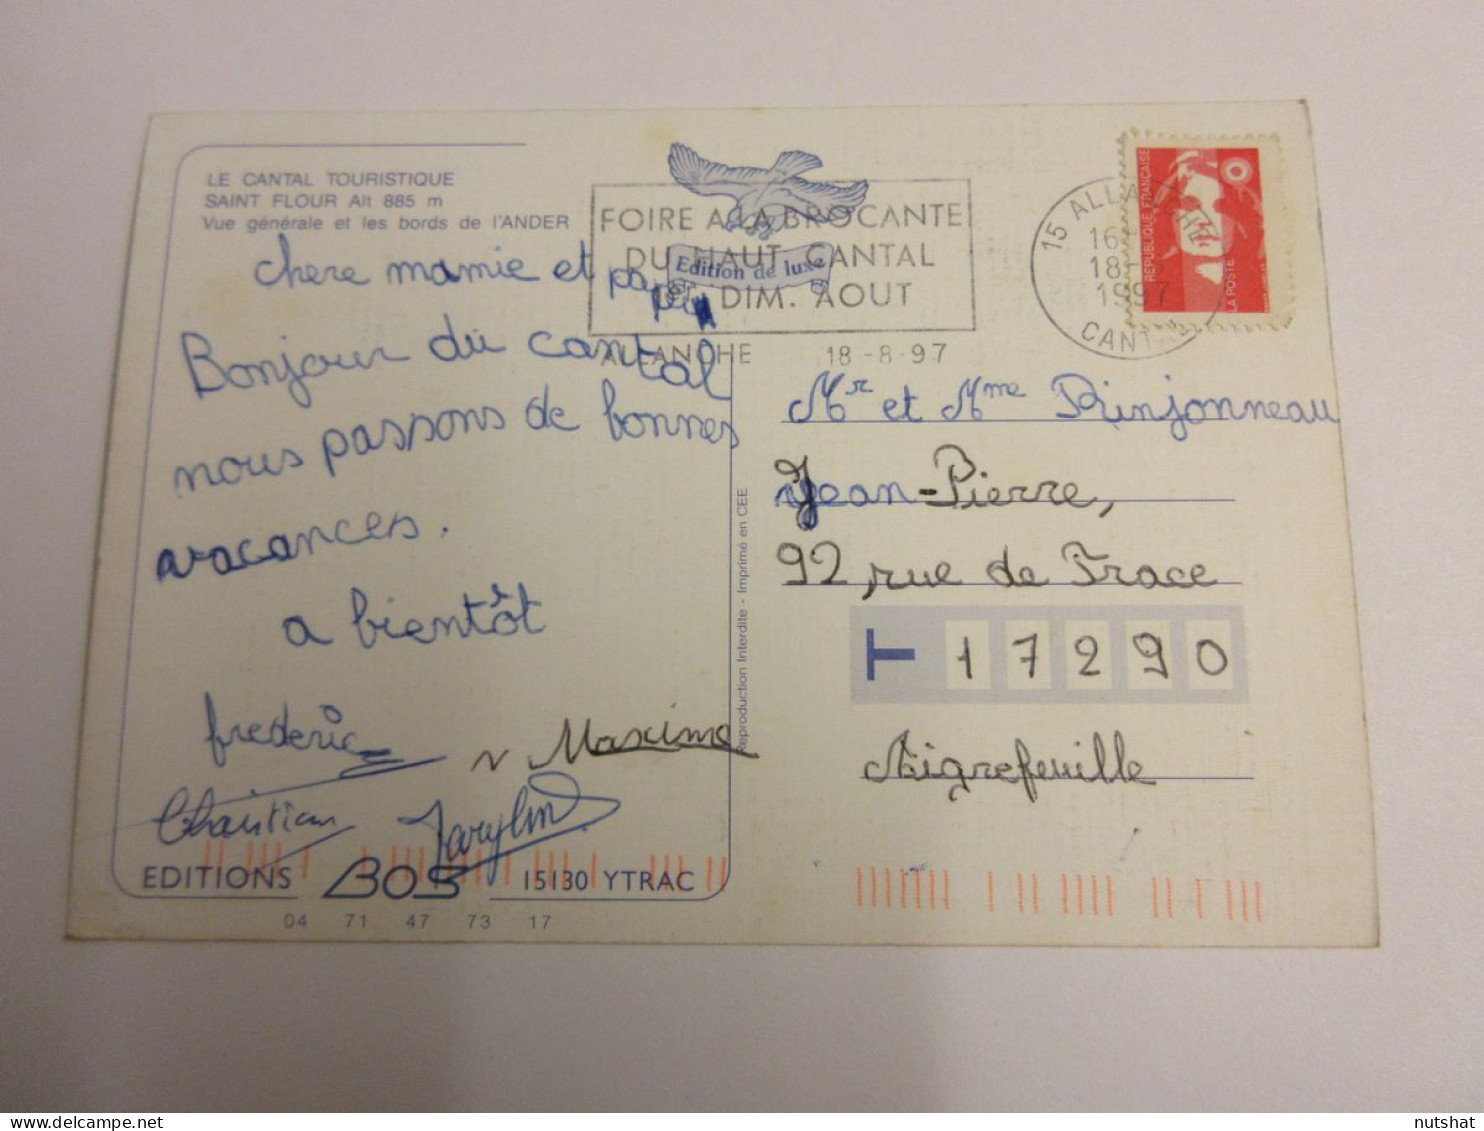 LE CANTAL TOURISTIQUE
SAINT FLOUR Alt 885 m
Vue générale et les bords de l'ANDER
chere mamie et papa
Bonjour du cantal
nous passons de bonnes
vacances.
a bientôt
frederic
Maxime
Christian
EDITIONS BOS 15130 YTRAC
04 71 47 73 17
FOIRE A LA BROCANTE
DU HAUT CANTAL
DIM. AOUT
Edition de luxe
ALLANCHE 18-8-97
15 ALLANCHE
18
1997
CANTAL
REPUBLIQUE FRANÇAISE
LA POSTE
Reproduction Interdite - Imprimé en CEE
Mr et Mme Rinjonneau
Jean-Pierre,
92, rue de Frace
T 17290
Aigrefeuille
nutshat